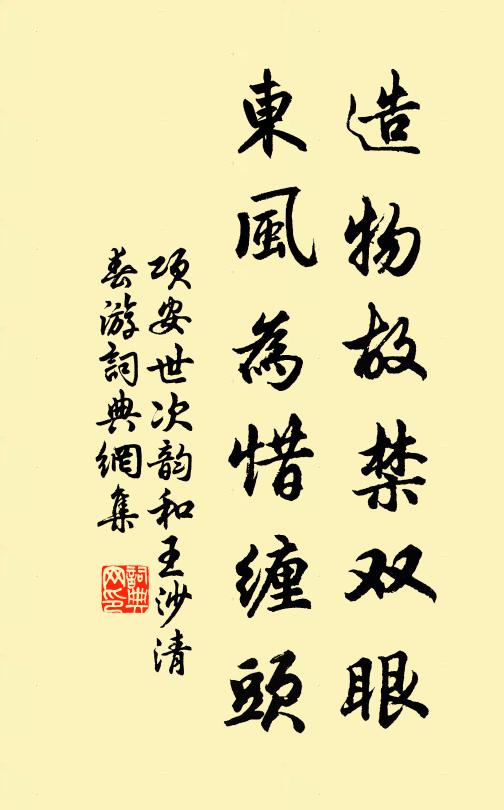 造物故禁双眼
東風為惜纏頭
项安世次韵和王沙清
春游詞典網集
詞典网印